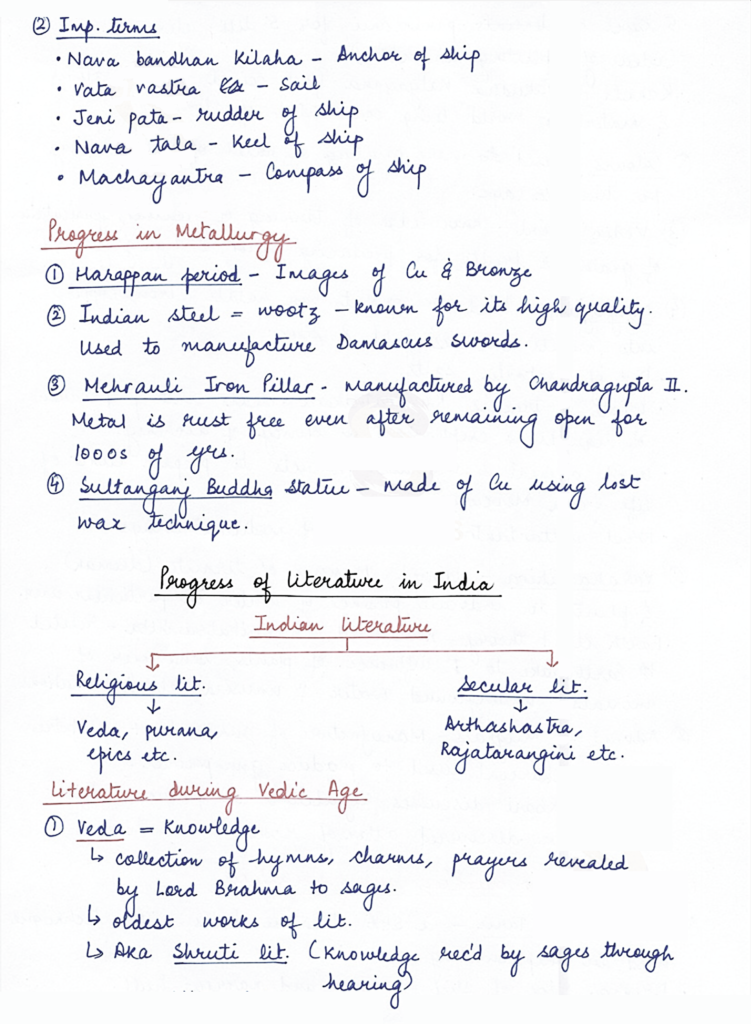 ② Imp. terms
• Nava bandhan Kilaha – Anchor of ship
• Vata vastra – Sail
• Jeni pata – rudder of ship
• Nava tala – Keel of ship
• Machayantra – Compass of ship
Progress in Metallurgy
① Harappan period – Images of Cu & Bronze
② Indian steel = wootz – known for its high quality.
Used to manufacture Damascus swords.
③ Mehrauli Iron Pillar - manufactured by Chandragupta II.
Metal is rust free even after remaining open for
1000s of yrs.
④ Sultanganj Buddha statue – made of Cu using lost
wax technique.
Progress of literature in India
Indian literature
Religious lit. secular lit.
↓ ↓
Veda, purana, Arthashastra,
epics etc. Rajatarangini etc.
Literature during Vedic Age
① Veda = Knowledge
↳ collection of hymns, charms, prayers revealed
by Lord Brahma to sages.
↳ oldest works of lit.
↳ Aka Shruti lit. (Knowledge rec'd by sages through
hearing)